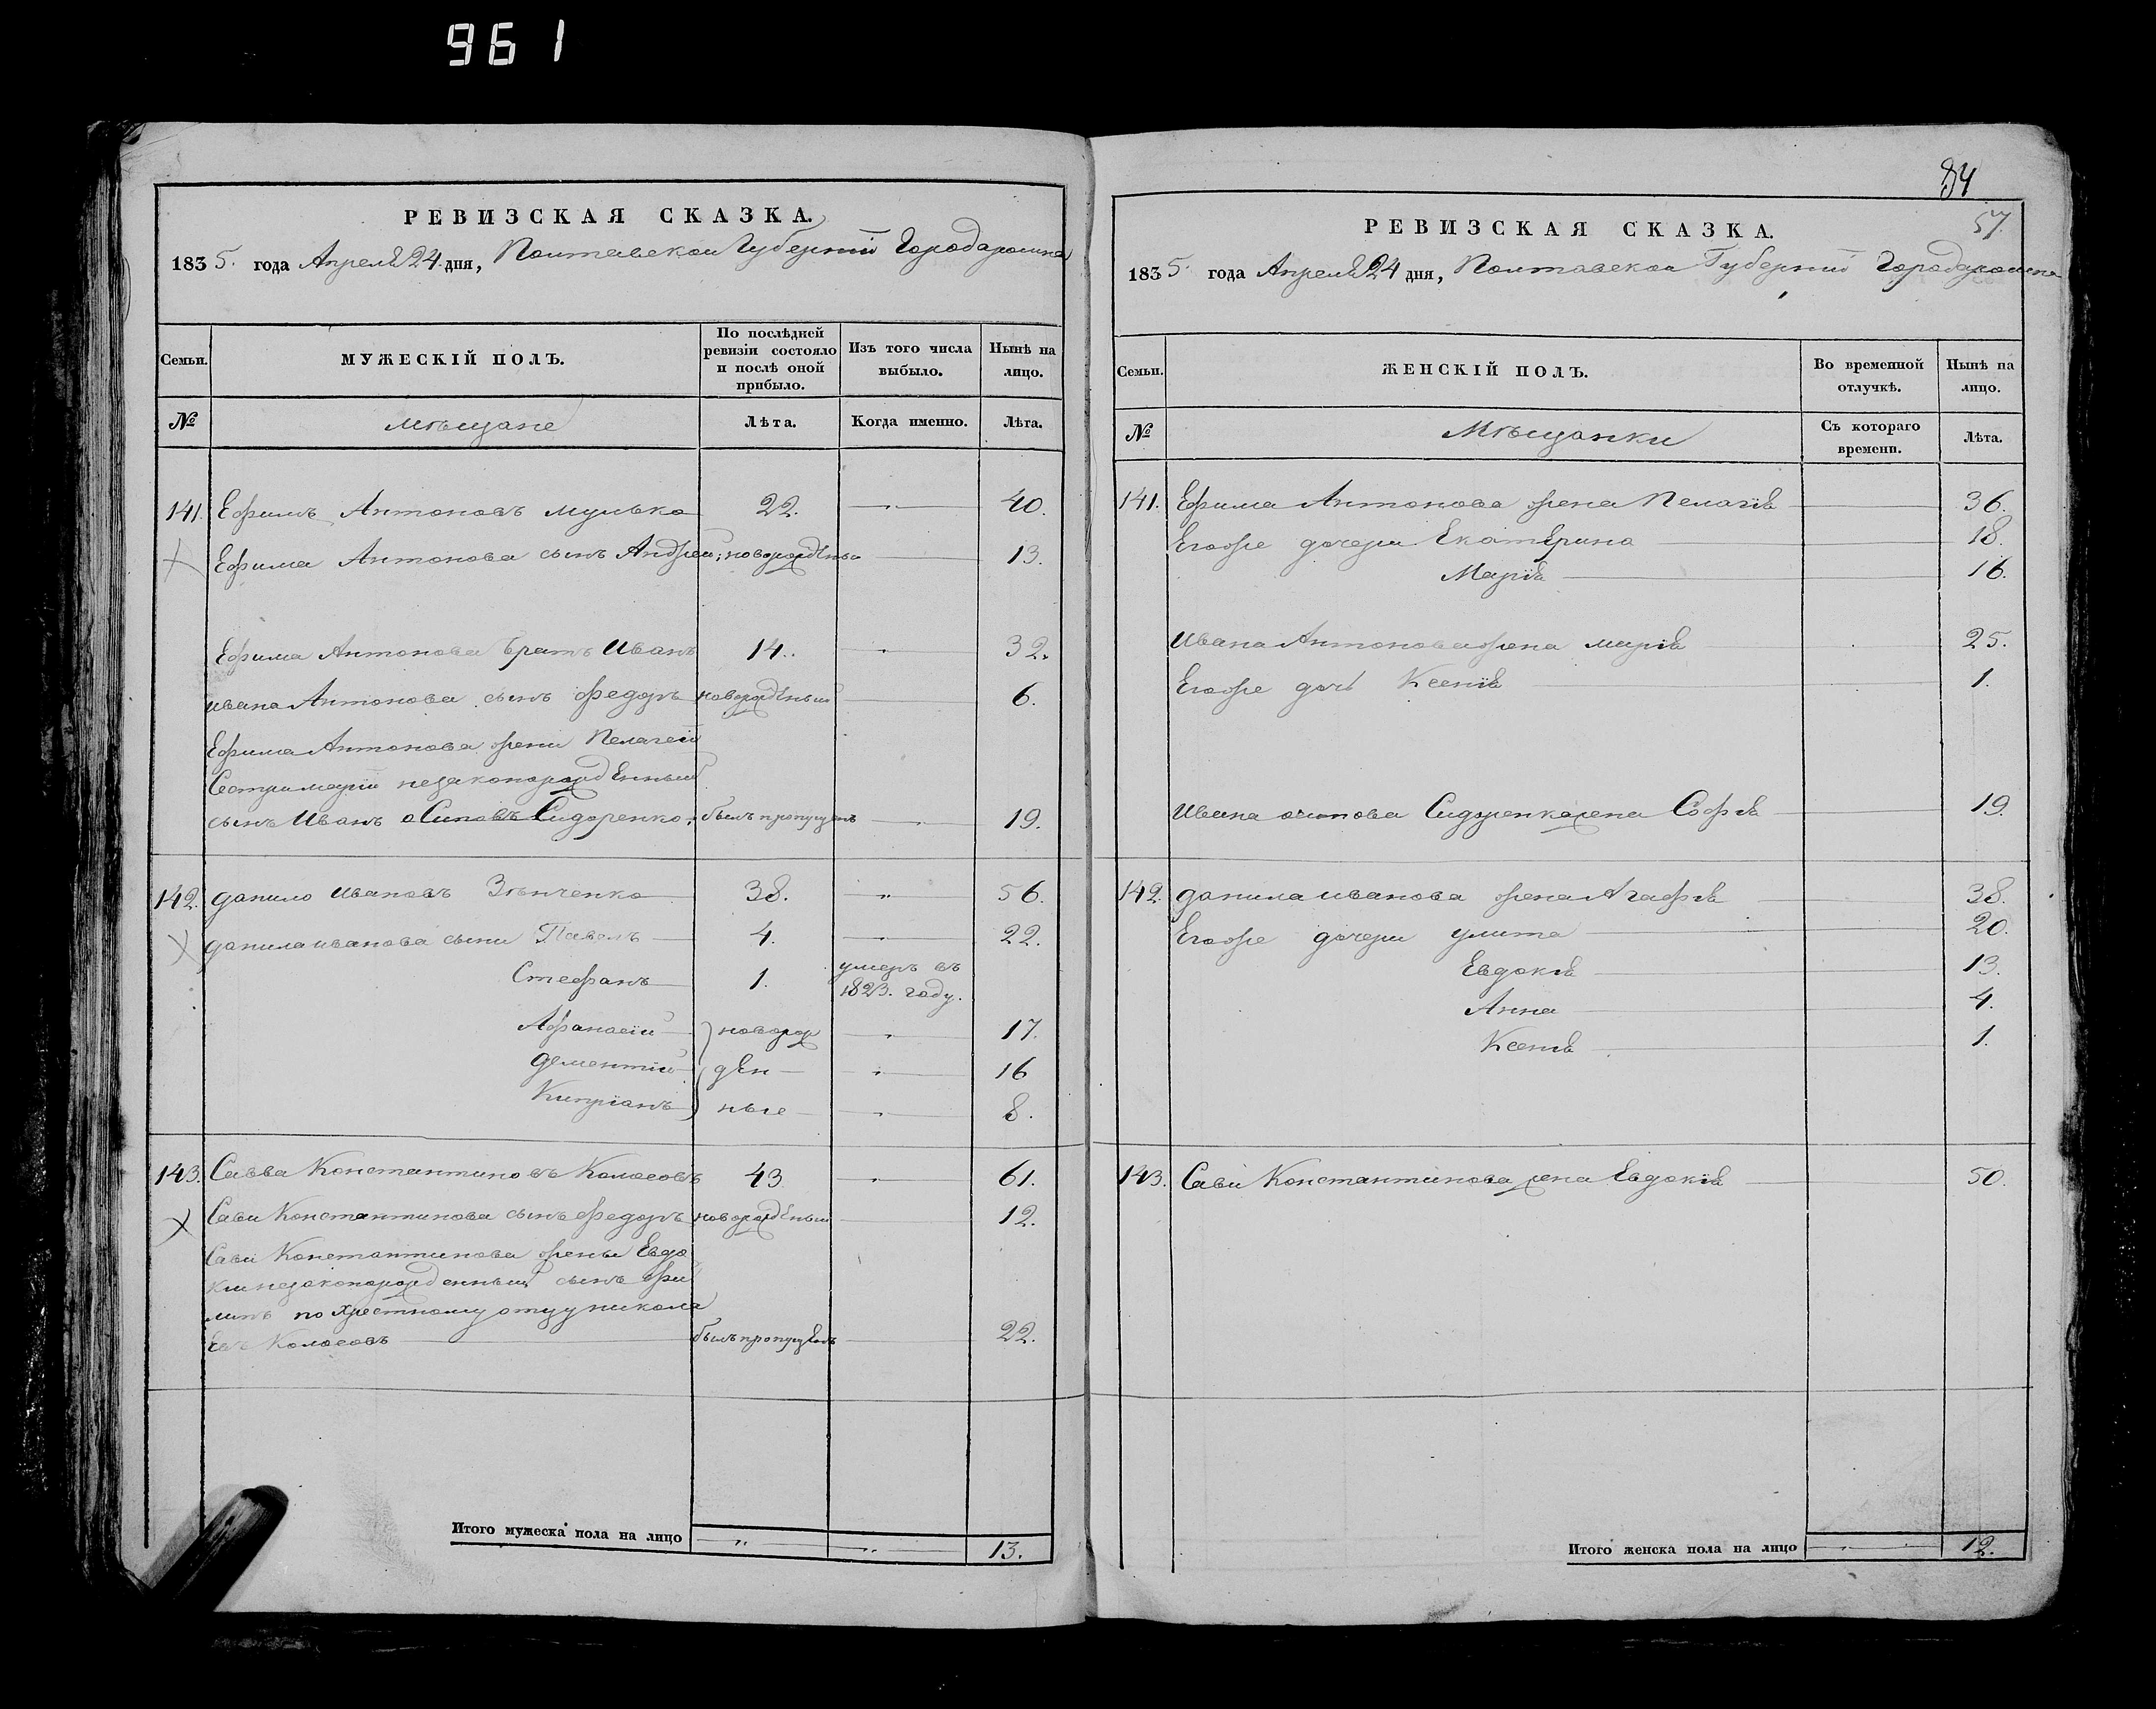 961
РЕВИЗСКАЯ СКАЗКА.
1835. года Апреля 24. дня, Полтавской Губернии Города ромна
Семьи.
МУЖЕСКІЙ ПОЛЪ.
По послѣдней ревизіи состояло и послѣ оной прибыло.
Изъ того числа выбыло.
Нынѣ на лицо.
№
мѣщане
Лѣта.
Когда именно.
Лѣта.
141. Ефимъ Антоновъ мулько 22. 40.
Ефима Антонова сынъ Андрей новорожденъ 13.
Ефима Антонова братъ Иванъ 14. 32.
ивана Антонова сынъ Федоръ новорожденый 6.
Ефима Антонова жени Пелагеи
Сестри марїи незаконорожденный
сынъ Иванъ осиповъ Сидоренко былъ пропущенъ 19.
142. данило Ивановъ Зѣнченко 38. 56.
данила иванова сыни Павелъ 4. 22.
Стефанъ 1. умеръ въ 1823. году.
Афанасїй новорож 17.
дементїй ден 16
Кипрїанъ ные 8.
143. Савва Константиновъ Колосовъ 43 61.
Сави Константинова сынъ федоръ новорожденый 12.
Сави Константинова жены Евдо
кии незаконорожденный сынъ фи
липъ по хрестному отцу никола
евъ Колосовъ былъ пропущенъ 22.
Итого мужеска пола на лицо 13.
84
57.
РЕВИЗСКАЯ СКАЗКА.
1835. года Апреля 24 дня, Полтавской Губернии Города ромна
Семьи.
ЖЕНСКІЙ ПОЛЪ.
Во временной отлучкѣ.
Нынѣ на лицо.
№
Мѣщанки
Съ котораго времени.
Лѣта.
141. Ефима Антонова жена Пелагїя 36.
Егоже дочери Екатерина 18.
Марїя 16.
Ивана Антонова жена марїя 25.
Егоже дочь Ксенїя 1.
Ивана осипова Сидоренка жена Софїя 19.
142. данила иванова жена Агафїя 38.
Егоже дочери улита 20.
Евдокїя 13.
Анна 4.
Ксенїя 1.
143. Сави Константинова жена Евдокїя 50.
Итого женска пола на лицо 12.